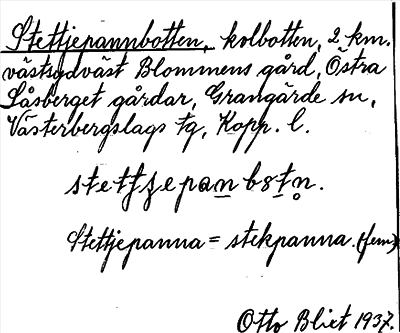 Stettjepannbotten, kolbotten, 2 km.
västsydväst Blommens gård, Östra
Låsberget gårdar, Grangärde sn,
Västerbergslags tg, Kopp. l.
Stettjepanna = stekpanna. (fem)
Otto Blixt 1937.